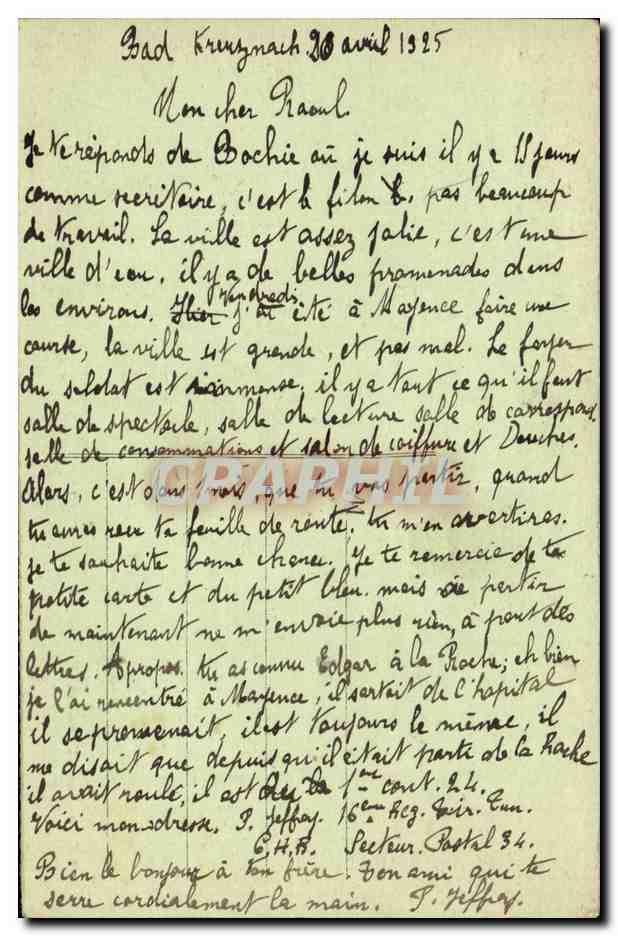 Bad Kreuznach 28 avril 1925
Mon cher Raoul
Je te réponds de Bochie où je suis il y a 15 jours
comme secritaire, c'est le filon, pas beaucoup
de travail. La ville est assez jolie, c'est une
ville d'eau, il y a de belles promenades dans
les environs. Hier Vendredi j'ai été à Mayence faire une
course, la ville est grande, et pas mal. Le foyer
du soldat est immense, il y a tout ce qu'il faut
salle de spectacle, salle de lecture salle de correspond.
salle de consommations et salon de coiffure et Douches.
Alors, c'est dans 1 mois, que tu vas partir, quand
tu auras reçu ta feuille de route, tu m'en avertiras.
je te souhaite bonne chance. Je te remercie de ta
petite carte et du petit bleu. mais à partir
de maintenant ne m'envoie plus rien, à part des
lettres. Apropos tu as connu Edgar à la Roche; eh bien
je l'ai rencontré à Mayence, il sortait de l'hopital
il se promenait, il est toujours le même, il
me disait que depuis qu'il était parti de la Roche
il avait roulé, il est au 1ère cont. 24.
Voici mon adresse. P. Jeffray. 16eme Reg. Tir. Tun.
C.H.R. Secteur. Postal 34.
Bien le bonjour à ton frère. Ton ami qui te
serre cordialement la main. P. Jeffray.
CRAPHIL